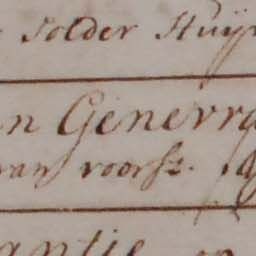 Solder Huijs
en Generra
van voorsz.
antie en